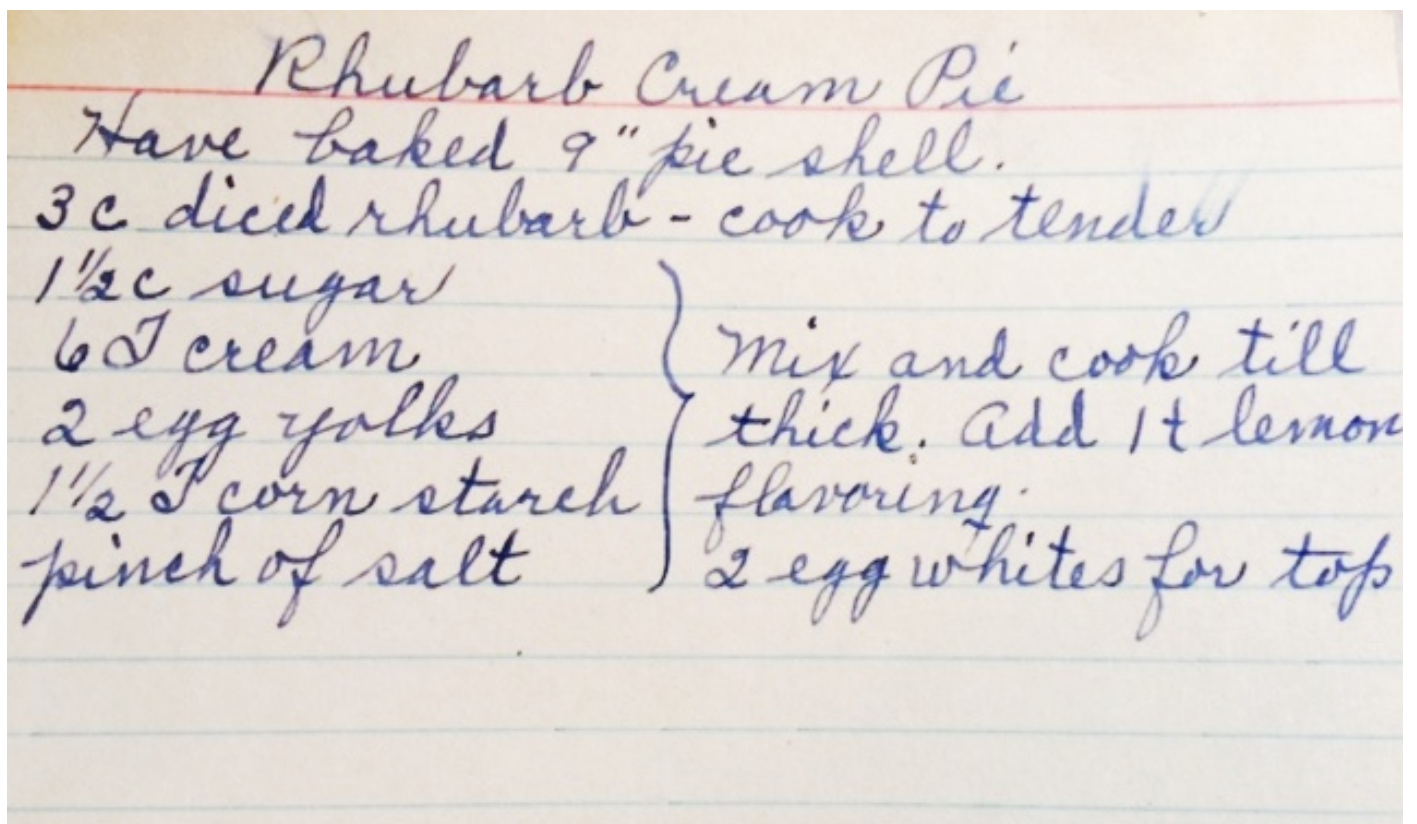 Rhubarb Cream Pie
Have baked 9" pie shell.
3 c diced rhubarb - cook to tender
1 1/2 c sugar
6 T cream
2 egg yolks
1 1/2 T corn starch
pinch of salt
Mix and cook till
thick. Add 1 t lemon
flavoring.
2 egg whites for top